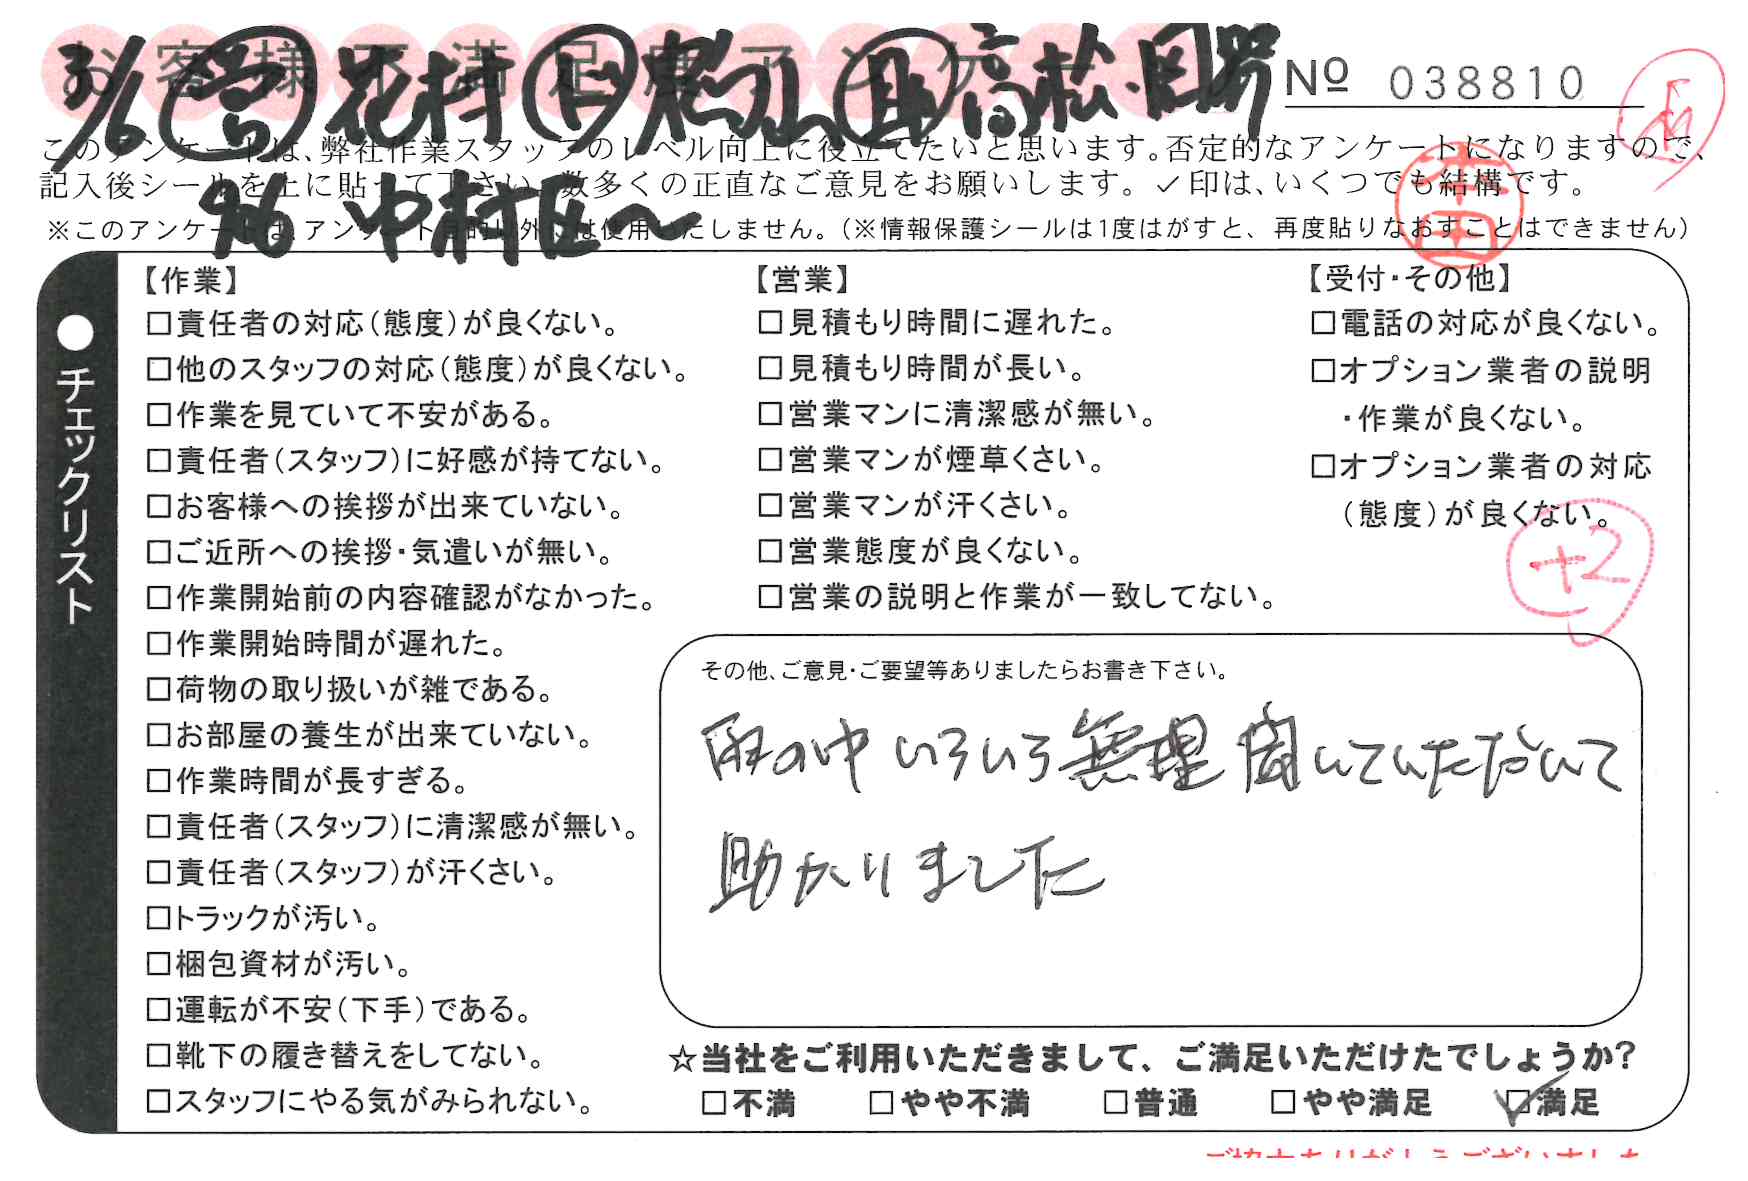 お客様不満足度アンケート
3/6 営 花村 ド 松山 助 高松・目器
No 038810
このアンケートは、弊社作業スタッフのレベル向上に役立てたいと思います。否定的なアンケートになりますので、
記入後シールを上に貼って下さい。数多くの正直なご意見をお願いします。✓印は、いくつでも結構です。
96 中村区〜
※このアンケートは、アンケート目的以外には使用いたしません。(※情報保護シールは1度はがすと、再度貼りなおすことはできません)
●チェックリスト
【作業】
□責任者の対応(態度)が良くない。
□他のスタッフの対応(態度)が良くない。
□作業を見ていて不安がある。
□責任者(スタッフ)に好感が持てない。
□お客様への挨拶が出来ていない。
□ご近所への挨拶・気遣いが無い。
□作業開始前の内容確認がなかった。
□作業開始時間が遅れた。
□荷物の取り扱いが雑である。
□お部屋の養生が出来ていない。
□作業時間が長すぎる。
□責任者(スタッフ)に清潔感が無い。
□責任者(スタッフ)が汗くさい。
□トラックが汚い。
□梱包資材が汚い。
□運転が不安(下手)である。
□靴下の履き替えをしてない。
□スタッフにやる気がみられない。
【営業】
□見積もり時間に遅れた。
□見積もり時間が長い。
□営業マンに清潔感が無い。
□営業マンが煙草くさい。
□営業マンが汗くさい。
□営業態度が良くない。
□営業の説明と作業が一致してない。
【受付・その他】
□電話の対応が良くない。
□オプション業者の説明
・作業が良くない。
□オプション業者の対応
(態度)が良くない。
+2
その他、ご意見・ご要望等ありましたらお書き下さい。
雨の中いろいろ無理聞いていただいて
助かりました
☆当社をご利用いただきまして、ご満足いただけたでしょうか?
□不満 □やや不満 □普通 □やや満足 ☑満足
ご協力ありがとうございました